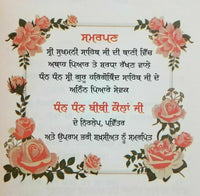 ਸਮਰਪਣ
ਸ੍ਰੀ ਸੁਖਮਨੀ ਸਾਹਿਬ ਜੀ ਦੀ ਬਾਣੀ ਵਿੱਚ
ਅਥਾਹ ਪਿਆਰ ਤੇ ਸ਼ਰਧਾ ਰੱਖਣ ਵਾਲੇ
ਧੰਨ ਧੰਨ ਸ੍ਰੀ ਗੁਰੂ ਹਰਿਗੋਬਿੰਦ ਸਾਹਿਬ ਜੀ ਦੇ
ਅਨਿੰਨ ਪਿਆਰੇ ਸੇਵਕ
ਧੰਨ ਧੰਨ ਬੀਬੀ ਕੌਲਾਂ ਜੀ
ਦੇ ਨਿਰਲੇਪ, ਪਵਿੱਤਰ
ਅਤੇ ਉਪਰਾਮ ਭਰੀ ਸ਼ਖ਼ਸੀਅਤ ਨੂੰ ਸਮਰਪਿਤ